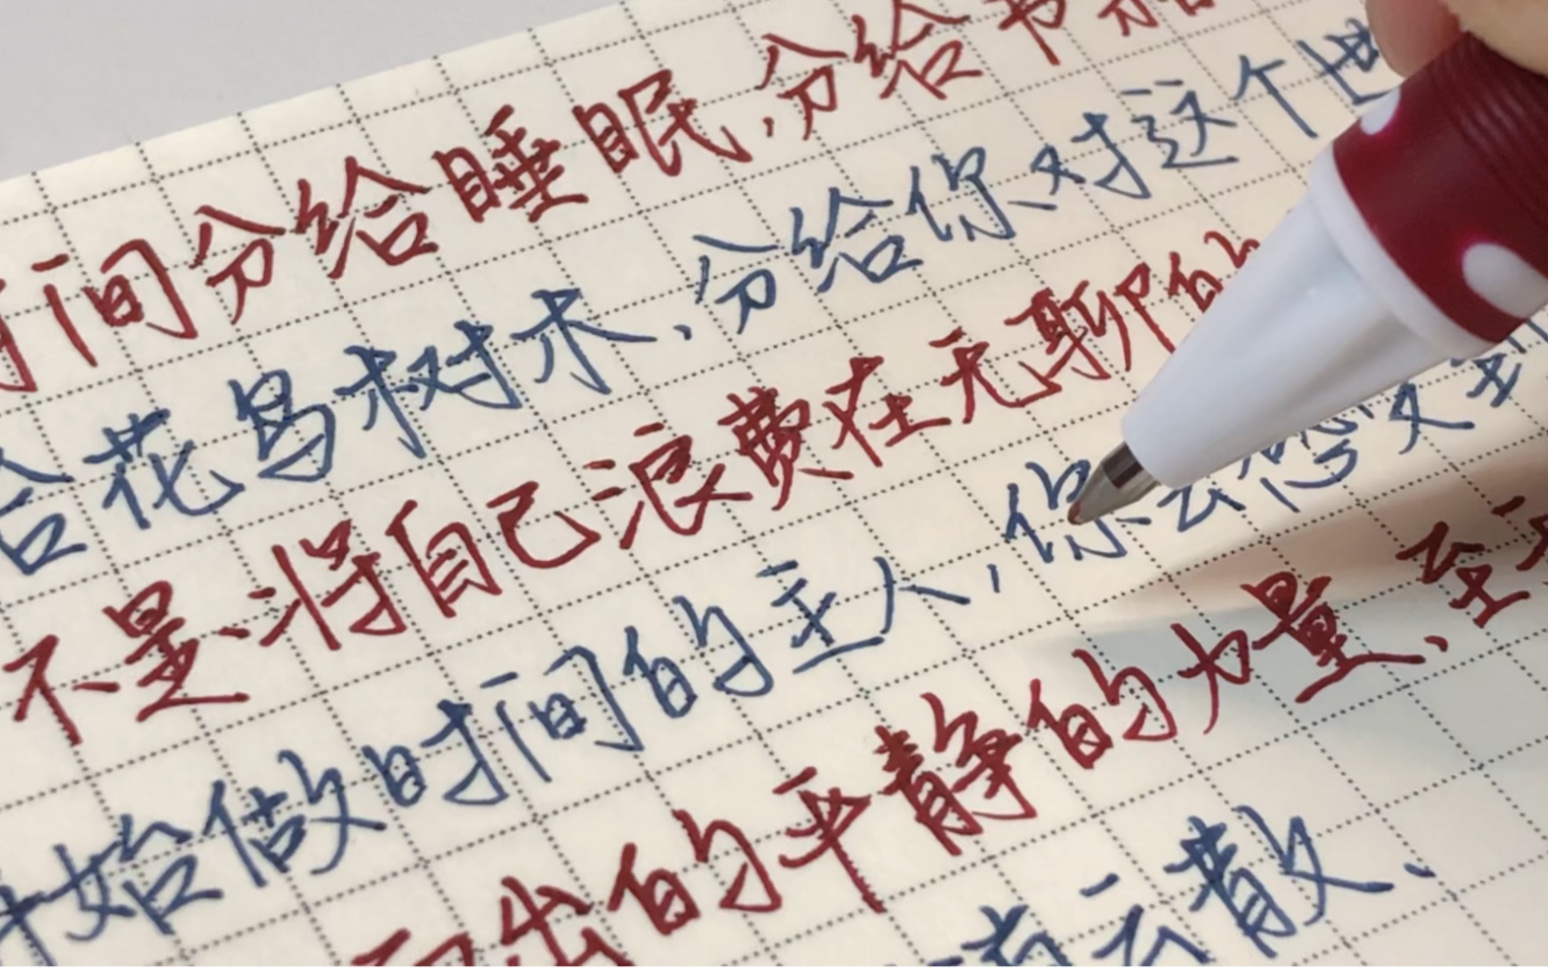 时间分给睡眠,分给书籍
给花鸟树木,分给你对这个世
不是将自己浪费在无聊的
开始做时间的主人,你会感受到
而出的平静的力量、至于
有云散、